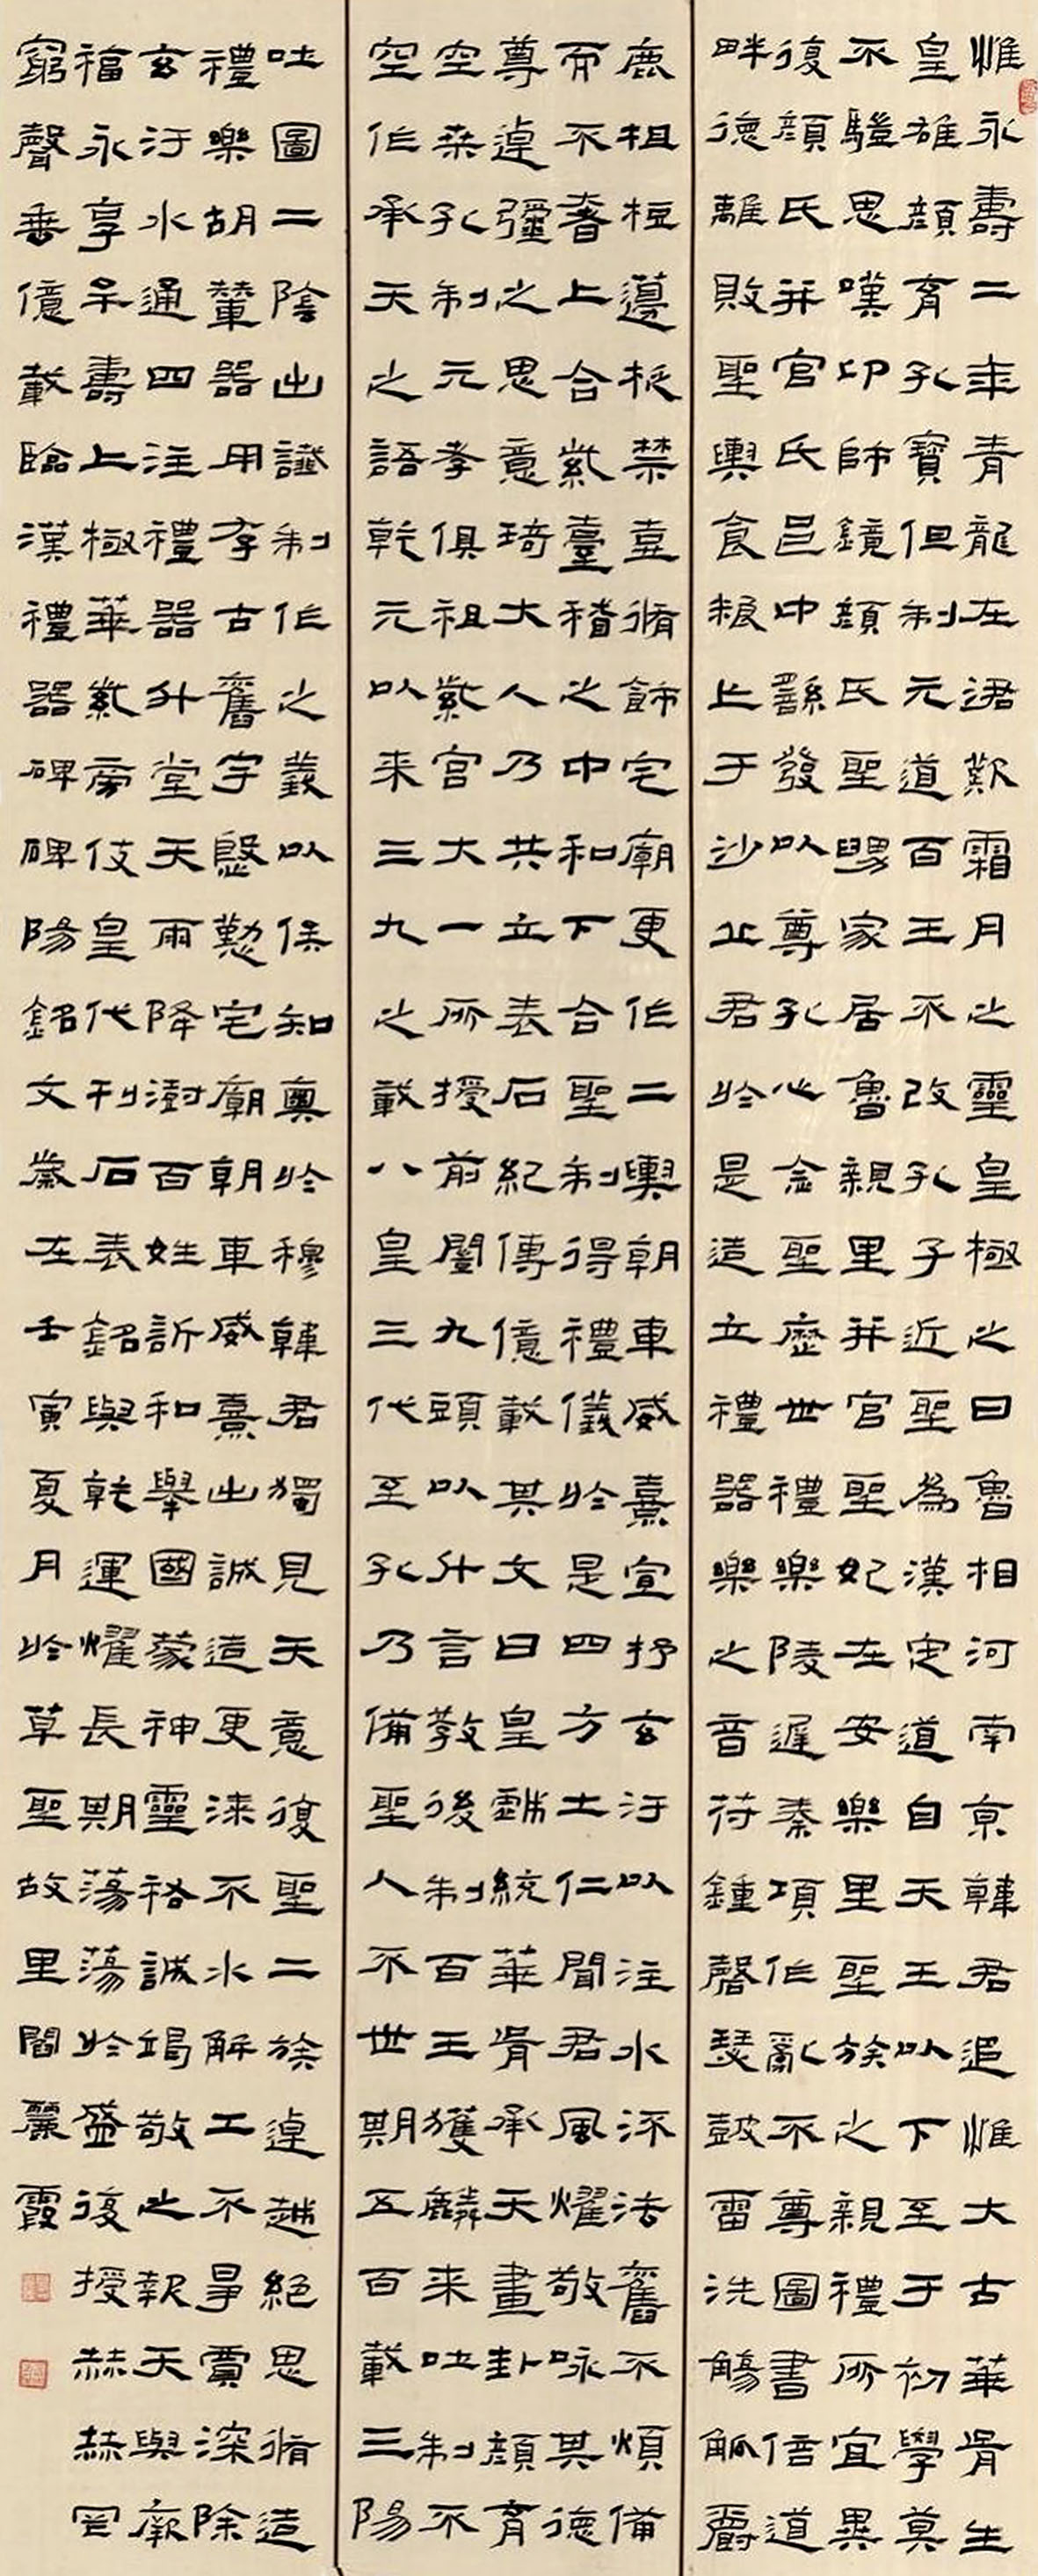 惟永壽二年青龍在涒歎霜月之靈皇極之日魯相河南京韓君追惟大古華胥生
皇雄顏育孔寶但制元道百王不改孔子近聖為漢定道自天王以下至于初學莫
不驥思嘆卬師鏡顏氏聖舅家居魯親里并官聖妃在安樂里聖族之親禮所宜異
復顏氏并官氏邑中繇發以尊孔心念聖歷世禮樂陵遲秦項作亂不尊圖書倍道
畔德離敗聖輿食粮亡于沙丘君於是造立禮器樂之音符鍾磬瑟鼓雷洗觴觚爵
鹿柤梪籩柉禁壺脩飾宅廟更作二輿朝車威熹宣抒玄汙以注水流法舊不煩備
而不奢上合紫臺稽之中和下合聖制得禮儀於是四方土仁聞君風燿敬咏其德
尊逴彊之思意琦大人乃共立表石紀傳億載其文曰皇戲統華胥承天畫卦顏育
空桑孔制元孝俱祖紫宮大一所授前闓九頭以什言教後制百王獲麟来吐制不
空作承天之語乾元以来三九之載八皇三代至孔乃備聖人不世期五百載三陽
吐圖二陰出讖制作之義以俟知奧於穆韓君獨見天意復聖二族逴越絕思脩造
禮樂胡輦器用存古舊宇慇懃宅廟朝車威熹出誠造更漆不水解工不爭賈深除
玄汙水通四注禮器升堂天雨降澍百姓訢和舉國蒙神靈祐誠竭敬之報天與厥
福永享牟壽上極華紫旁伎皇代刊石表銘與乾運燿長期蕩蕩於盛復授赫赫罔
窮聲垂億載臨漢禮器碑碑陽銘文歲在壬寅夏月於草聖故里閻麗霞